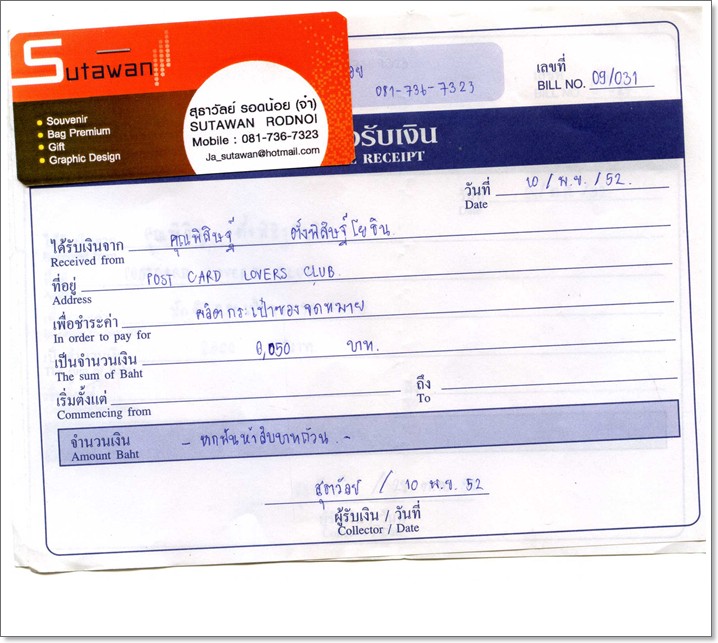 Sutawan
Souvenir
Bag Premium
Gift
Graphic Design
สุธาวัลย์ รอดน้อย (จ๋า)
SUTAWAN RODNOI
Mobile : 081-736-7323
Ja_sutawan@hotmail.com
081-736-7323
เลขที่
BILL NO. 09/031
รับเงิน
RECEIPT
วันที่ 10 / พ.ย. / 52.
Date
ได้รับเงินจาก คุณพิสิษฐ์ ตั้งพิสิษฐ์โยธิน
Received from
ที่อยู่ POST CARD LOVERS CLUB.
Address
เพื่อชำระค่า ผลิตกระเป๋าซองจดหมาย
In order to pay for
เป็นจำนวนเงิน 6,050 บาท.
The sum of Baht
เริ่มตั้งแต่ ถึง
Commencing from To
จำนวนเงิน - หกพันห้าสิบบาทถ้วน. -
Amount Baht
สุธาวัลย์ / 10 พ.ย. 52
ผู้รับเงิน / วันที่
Collector / Date